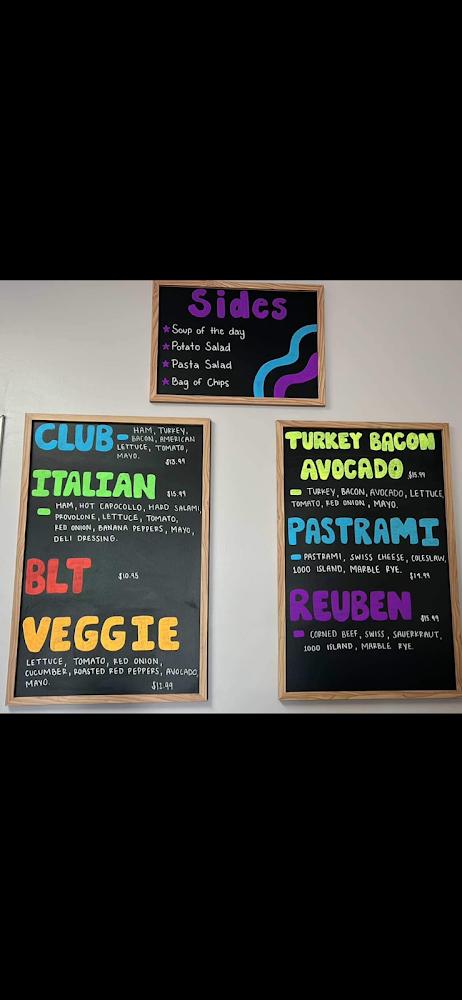 Sides
★ Soup of the day
★ Potato Salad
★ Pasta Salad
★ Bag of Chips
CLUB - HAM, TURKEY,
BACON, AMERICAN
LETTUCE, TOMATO,
MAYO.
$13.99
ITALIAN $15.99
- HAM, HOT CAPOCOLLO, HARD SALAMI,
PROVOLONE, LETTUCE, TOMATO,
RED ONION, BANANA PEPPERS, MAYO,
DELI DRESSING.
BLT $10.95
VEGGIE
LETTUCE, TOMATO, RED ONION,
CUCUMBER, ROASTED RED PEPPERS, AVOCADO,
MAYO.
TURKEY BACON
AVOCADO $15.99
- TURKEY, BACON, AVOCADO, LETTUCE
TOMATO, RED ONION, MAYO.
PASTRAMI
- PASTRAMI, SWISS CHEESE, COLESLAW,
1000 ISLAND, MARBLE RYE.
REUBEN $15.99
- CORNED BEEF, SWISS, SAUERKRAUT,
1000 ISLAND, MARBLE RYE.